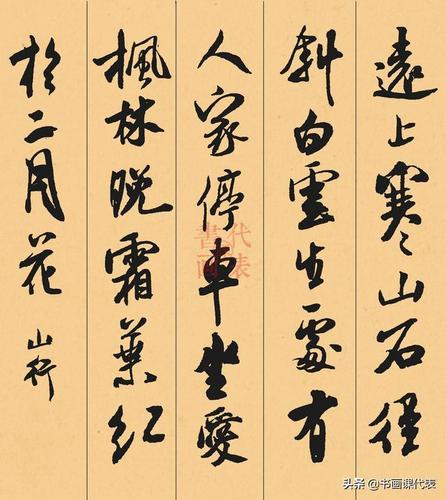 遠上寒山石徑
斜白雲生處有
人家停車坐愛
楓林晚霜葉紅
於二月花
山行
書画
代表
头条 @书画课代表